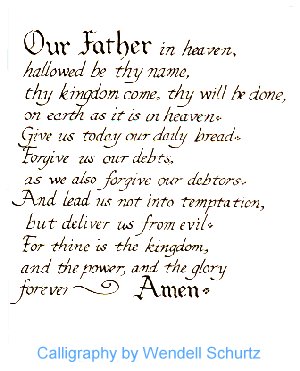 Our Father in heaven,
hallowed be thy name,
thy kingdom come, thy will be done,
on earth as it is in heaven.
Give us today our daily bread.
Forgive us our debts,
as we also forgive our debtors.
And lead us not into temptation,
but deliver us from evil.
For thine is the kingdom,
and the power, and the glory
forever Amen.
Calligraphy by Wendell Schurtz